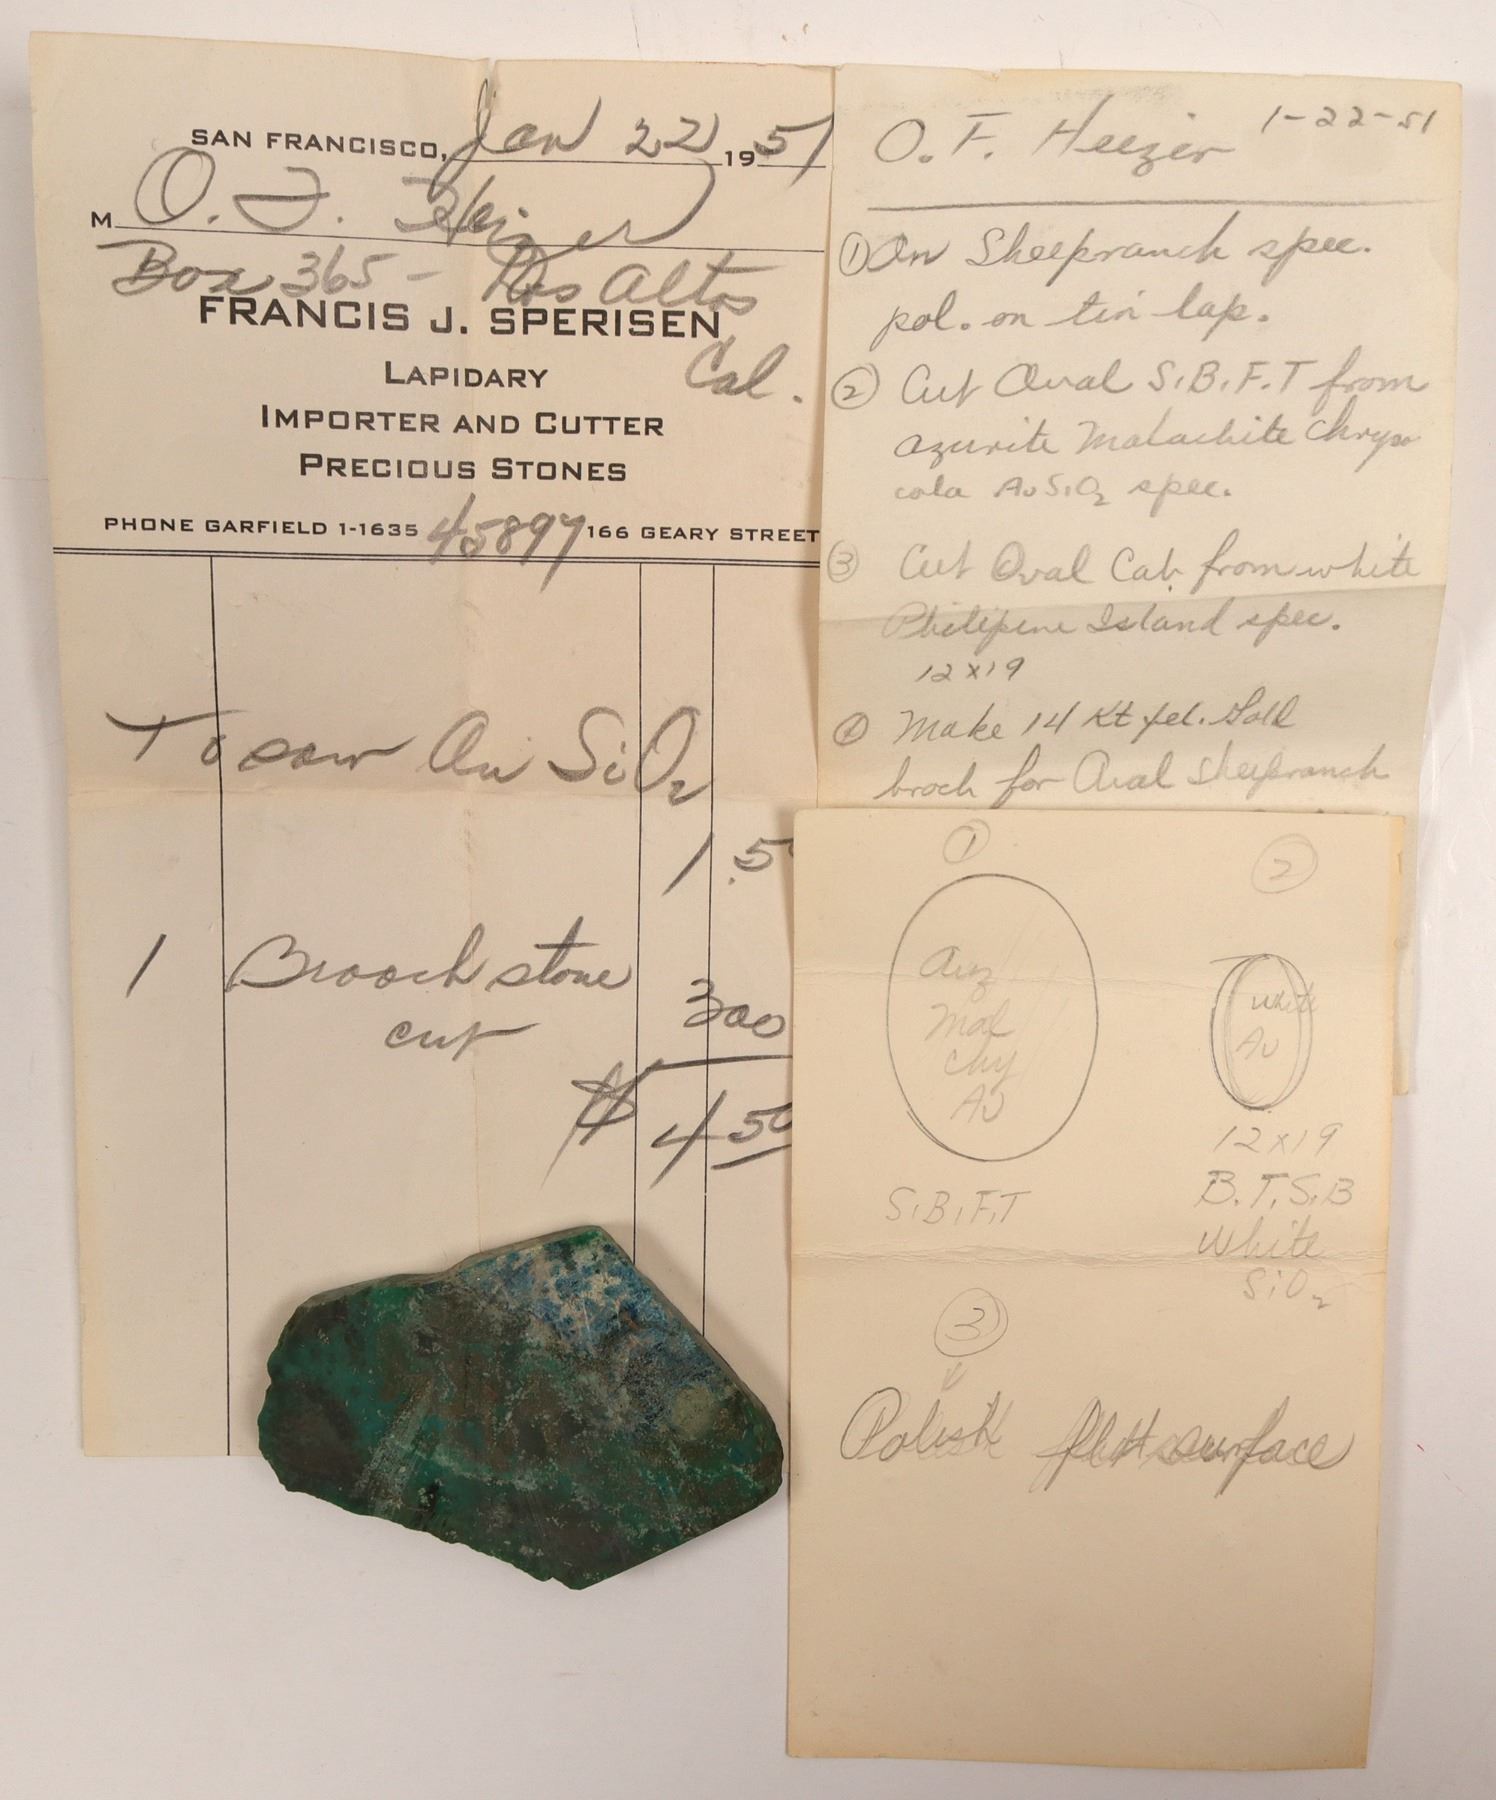 SAN FRANCISCO, Jan 22 1951
M O. F. Heizer
Box 365 - Los Altos
Cal.
FRANCIS J. SPERISEN
LAPIDARY
IMPORTER AND CUTTER
PRECIOUS STONES
PHONE GARFIELD 1-1635 45897 166 GEARY STREET
To saw Au SiO2
1.5
1 Brooch stone 300
cut
$ 4 50
O. F. Heezer 1-22-51
① On Sheepranch spec.
pol. on tin lap.
② Cut Oval S.B.F.T from
azurite Malachite Chryso
cola Au SiO2 spec.
③ Cut Oval Cab. from white
Philipine Island spec.
12x19
④ Make 14 Kt yel. Gold
broch for Oval Sheepranch
①
Auz
Mal
Chy
Au
S.B.F.T
②
white
Au
12x19
B.T.S.B
White
SiO2
③
Polish flat surface